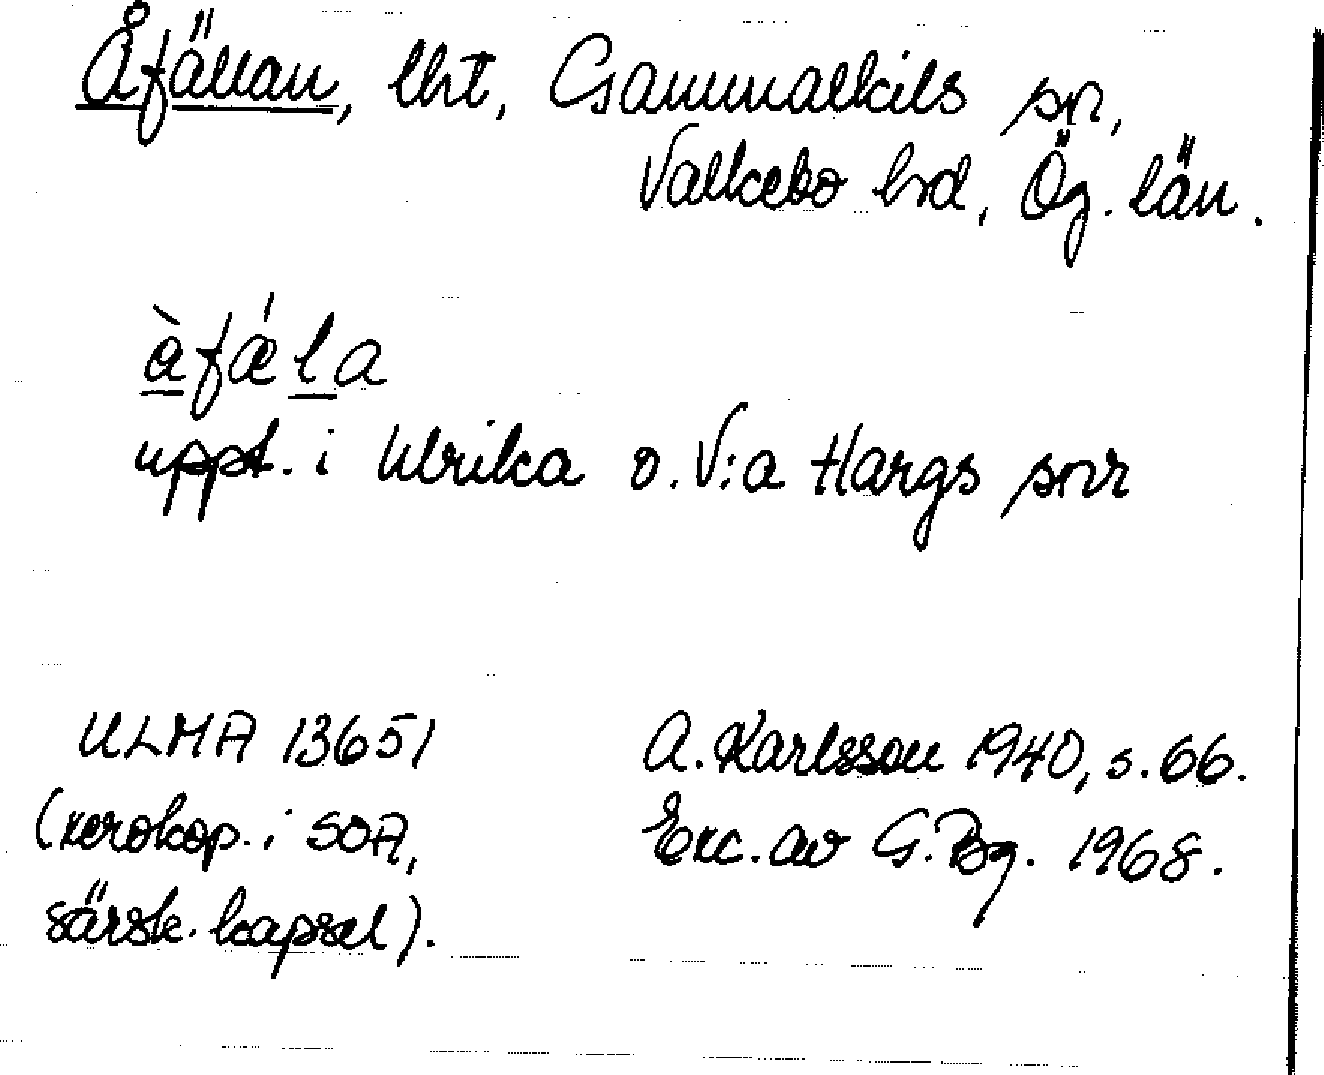 Åfällan, lht, Gammalkils sn,
Valkebo hd, Ög. län.
àfǽla
uppt. i Ulrika o. V:a Hargs snr
ULMA 13651
(xerokop. i SOA,
särsk. kapsel).
A. Karlsson 1940, s. 66.
Exc. av G. Bg. 1968.